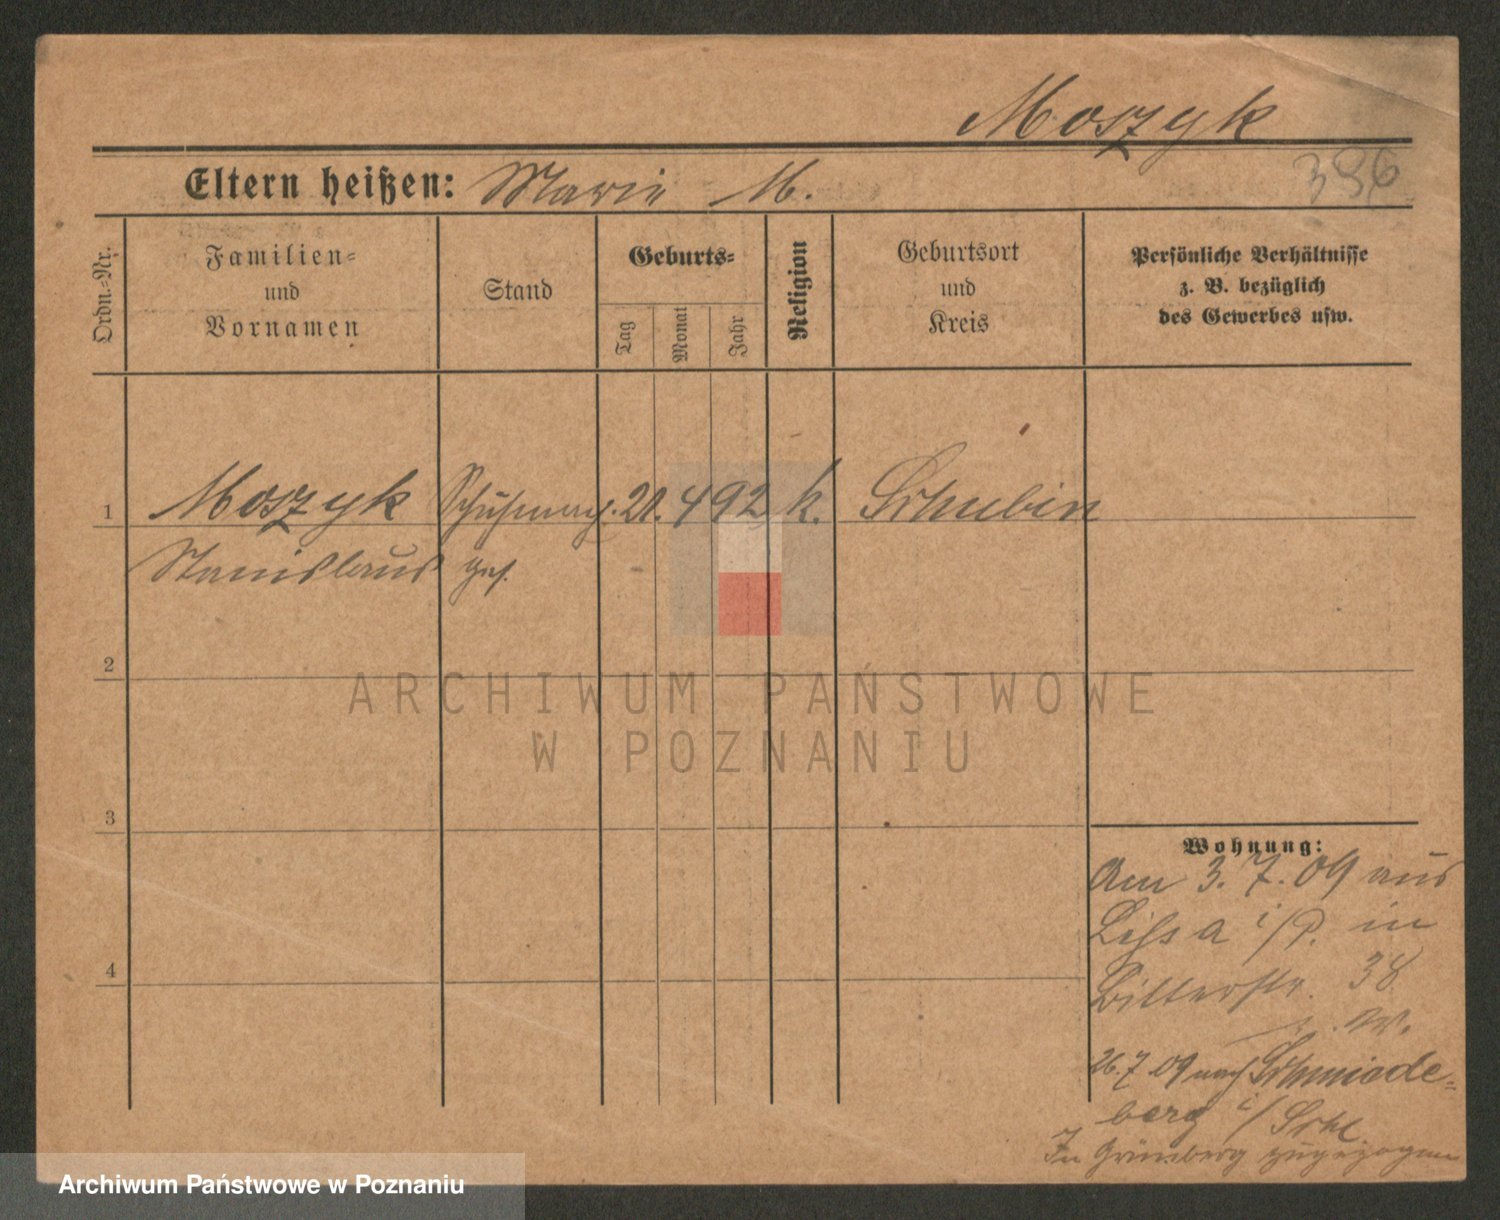 Moszyk
386
Eltern heißen: Marie M.
Ordn.-Nr.
Familien-
und
Vornamen
Stand
Geburts-
Tag
Monat
Jahr
Religion
Geburtsort
und
Kreis
Persönliche Verhältnisse
z. B. bezüglich
des Gewerbes usw.
1 Moszyk Schuhmach. 21. 4 92 k. Schubin
Stanislaus ges.
2
ARCHIWUM PAŃSTWOWE
W POZNANIU
3
Wohnung:
Am 3. 7. 09 aus
Lissa i/P. in
38
4
26. 7. 09 nach Schmiede-
berg i/Schl
In Grünberg zugezogen
Archiwum Państwowe w Poznaniu